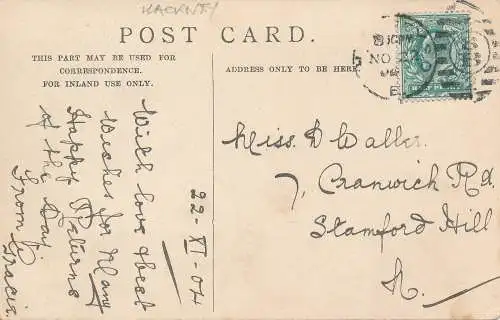 HACKNEY
POST CARD.
THIS PART MAY BE USED FOR
CORRESPONDENCE.
FOR INLAND USE ONLY.
ADDRESS ONLY TO BE HERE.
With love & best
Wishes for Many
Happy Returns
of the Day
From Gracie
22-XI-04
Miss D Waller.
7, Cranwich Rd.
Stamford Hill
N.
NO 2
E
HALFPENNY